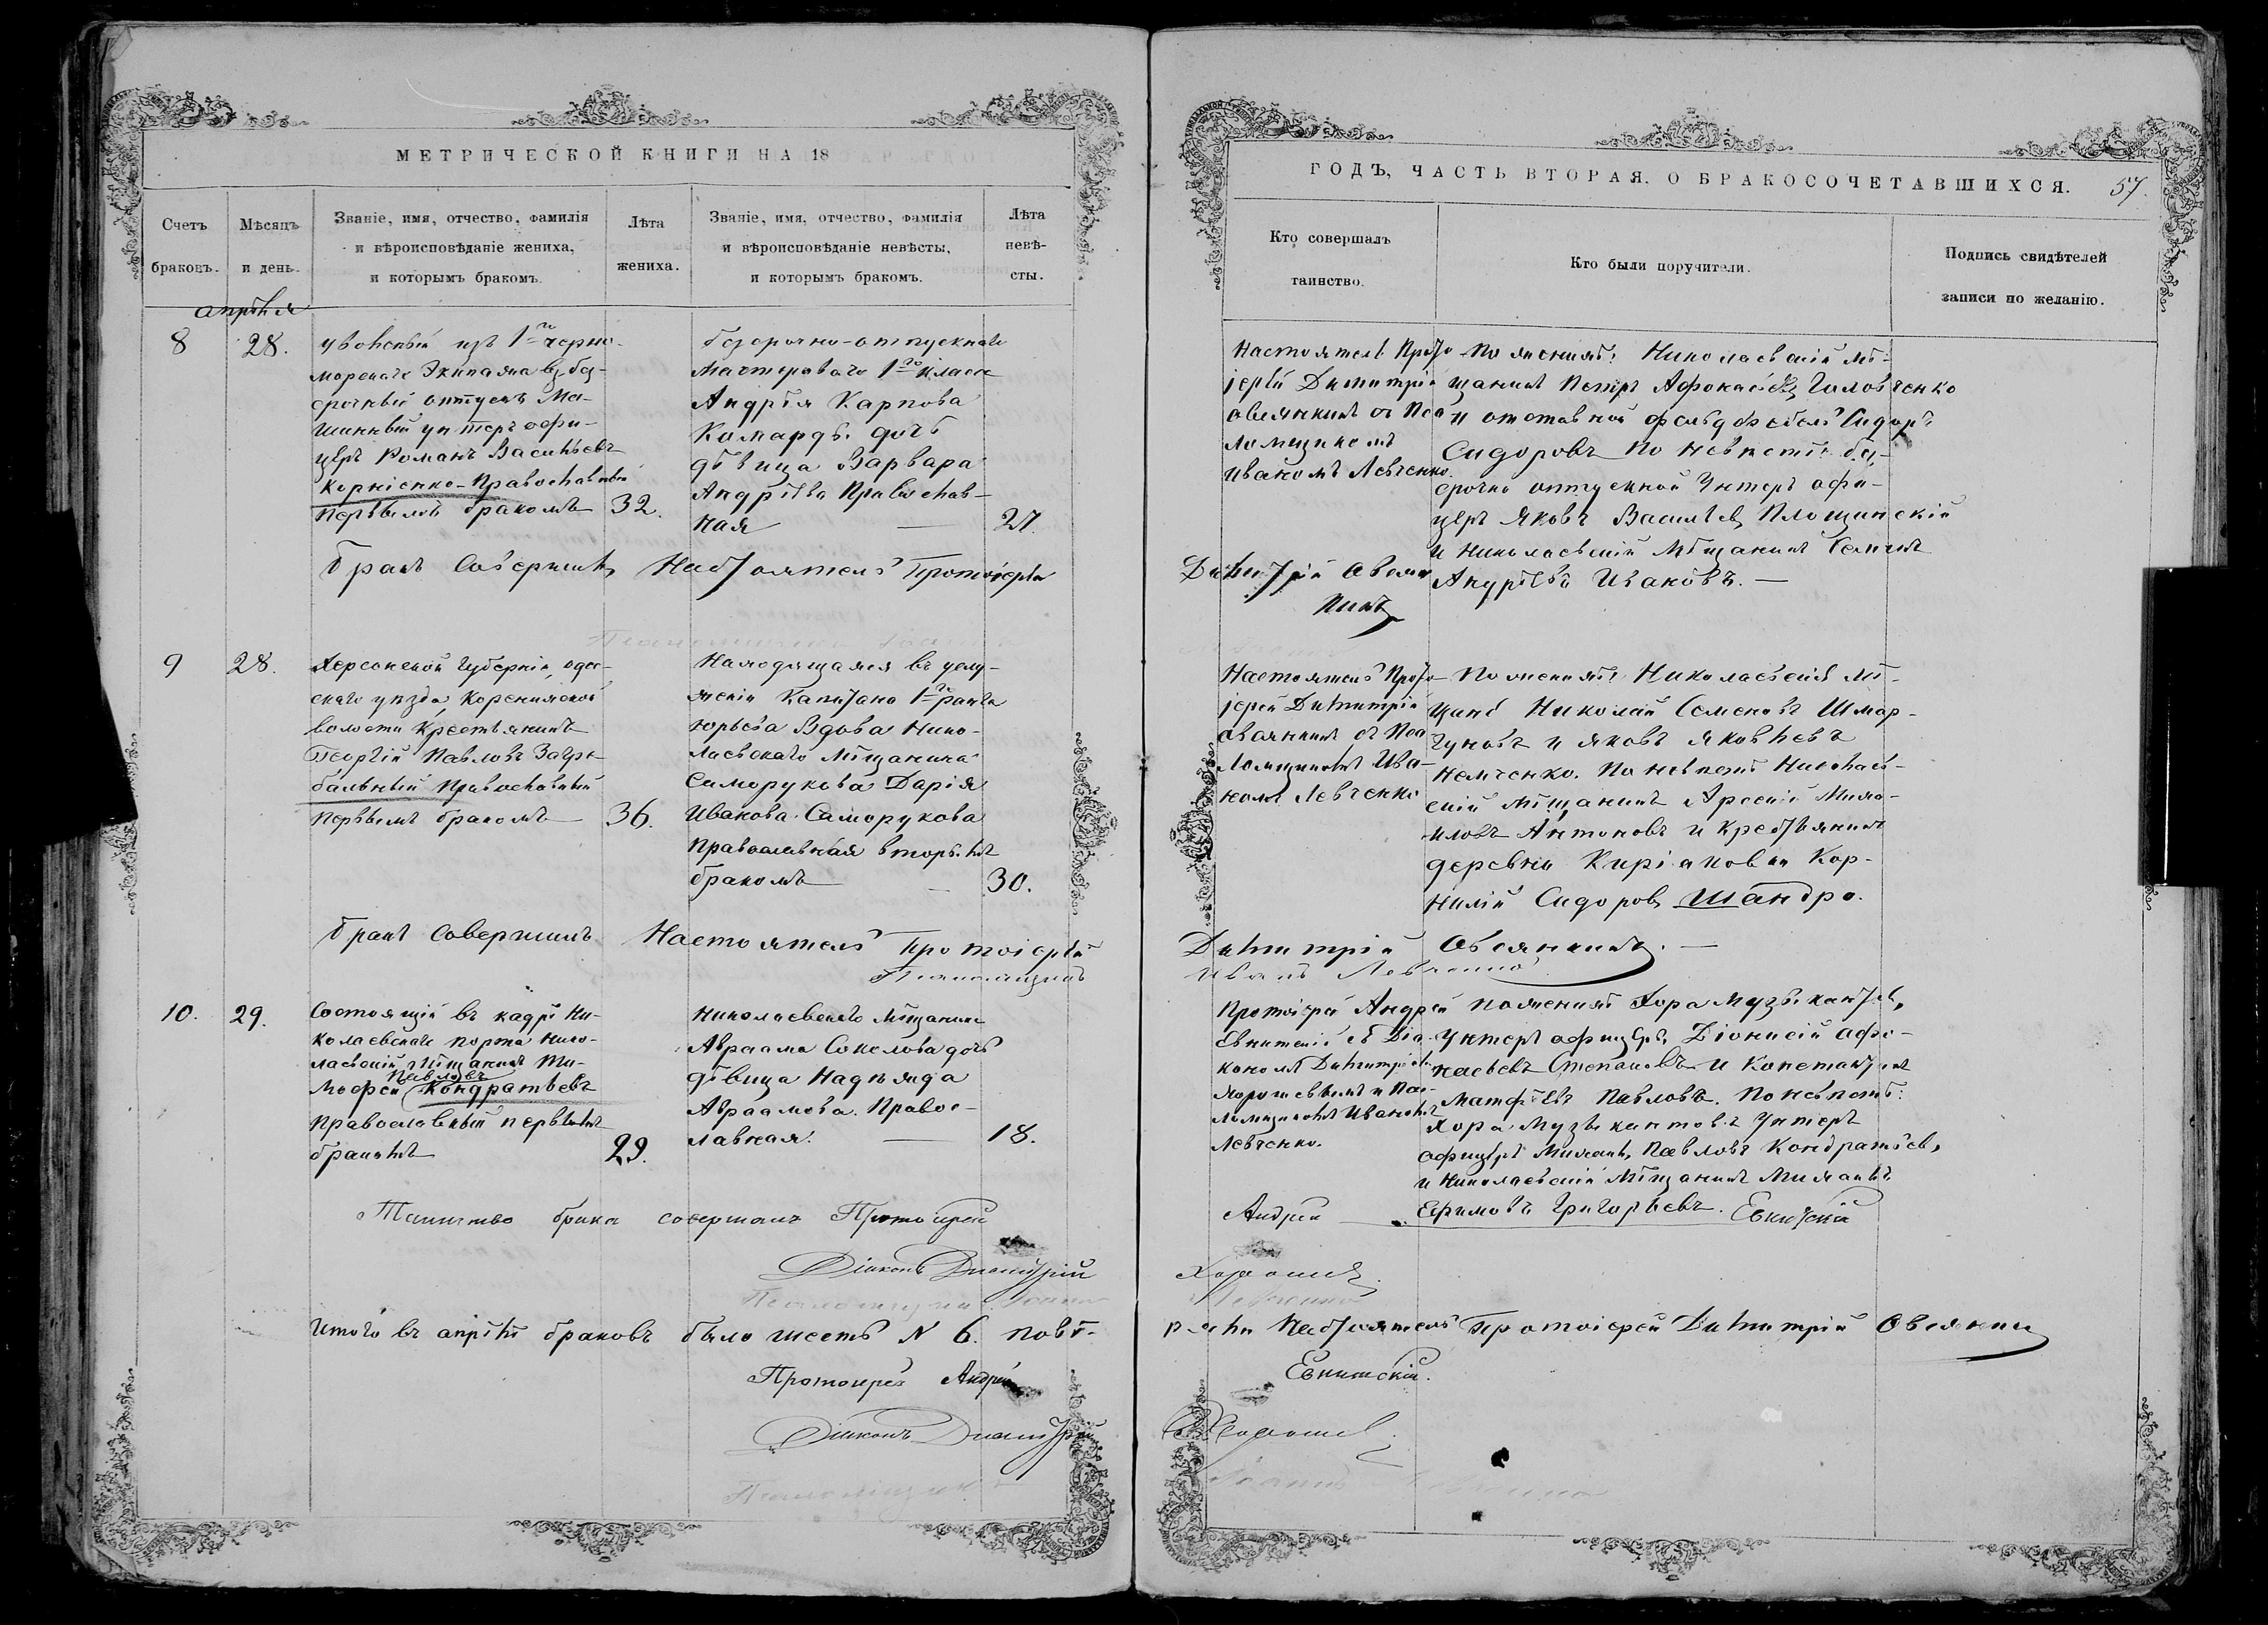 МЕТРИЧЕСКОЙ КНИГИ НА 18
Счетъ браковъ.
Мѣсяцъ и день.
Званіе, имя, отчество, фамилія
и вѣроисповѣданіе жениха,
и которымъ бракомъ.
Лѣта
жениха.
Званіе, имя, отчество, фамилія
и вѣроисповѣданіе невѣсты,
и которымъ бракомъ.
Лѣта
невѣ-
сты.
апрѣля
8
28.
уволеный изъ 1го черно-
морскаго Экипажа въ без-
срочный отпускъ Ма-
шинный унтеръ офи-
церъ Романъ Васильевъ
Корніенко-Православный
первымъ бракомъ
32.
безсрочно-отпускнаго
Мастероваго 1го класса
Андрѣя Карпова
дочь
дѣвица Варвара
Андрѣева Православ-
ная
27.
Бракъ Совершилъ Настоятель Протоіерей
9
28.
Херсонской Губерніи, одес-
скаго уѣзда,
волости Крестьянинъ
Георгій Павловъ Загре-
бальный Православный
первымъ бракомъ
36.
Находящаяся въ услу-
женіи Капитана 1го ранга
Юрьева Вдова Нико-
лаевскаго Мѣщанина
Саморукова Дарія
Иванова Саморукова
Православная вторымъ
бракомъ
30.
бракъ Совершилъ Настоятель Протоіерей
Псаломщикъ
10.
29.
Состоящій въ кадрѣ Ни-
колаевскаго порта Нико-
лаевскій Мѣщанинъ Ти-
Павловъ
мофей Кондратьевъ
Православный первымъ
бракомъ
29.
Николаевскаго Мѣщанина
Авраама Соколова дочь
дѣвица Надежда
Авраамова. Правос-
лавная.
18.
Таинство брака совершалъ Протоиерей
Діаконъ Димитрій
Итого въ апрѣлѣ браковъ было шесть N 6. повѣ-
Протоиерей Андрей
Діаконъ Димитрій
Псаломщикъ
ГОДЪ, ЧАСТЬ ВТОРАЯ, О БРАКОСОЧЕТАВШИХСЯ. 57.
Кто совершалъ
таинство.
Кто были поручители.
Подпись свидѣтелей
записи по желанію.
Настоятель Прото-
іерей Димитрій
Овсянкинъ съ Пса-
ломщикомъ
Иваномъ Левченко.
По женихѣ: Николаевскій мѣ-
щанинъ Петръ Головченко
и отставной фельдфебель Сидоръ
Сидоровъ По невѣстѣ: без-
срочно отпускной Унтеръ офи-
церъ Яковъ Васильевъ Площинскій
и Николаевскій Мѣщанинъ
Андрѣевъ Ивановъ.
Димитрій Овсян
кинъ
Настоятель Прото-
іерей Димитрій
Овсянкинъ съ Пса-
ломщикомъ Ива-
номъ Левченко
По женихѣ: Николаевскіе Мѣ-
щане Николай Семеновъ Шмар-
гуновъ и Яковъ Яковлевъ
Немченко. По невѣстѣ Николаев-
скій Мѣщанинъ Арсеній Михай-
ловъ Антоновъ и Крестьянинъ
деревни Киріаковки Кор-
нилій Сидоровъ Шандро.
Димитрій Овсянкинъ.
Иванъ Левченко
Протоіерей Андрей
Евнитскій съ Діа-
кономъ Димитріемъ
Хорошевымъ и Пса-
ломщикомъ Иваномъ
Левченко.
По женихѣ Хора Музыкантовъ,
Унтеръ офицеръ Діонисій Афо-
насьевъ Степановъ и Константинъ
Матфѣевъ Павловъ. По невѣстѣ:
Хора Музыкантовъ Унтеръ
офицеръ Михаилъ Павловъ Кондратьевъ,
и Николаевскій Мѣщанинъ Михаилъ
Ефимовъ Григорьевъ.
Андрей Евнитскій
Хорошевъ.
Левченко
ряли Настоятель Протоіерей Димитрій Овсянкинъ
Евнитскій.
Хорошев